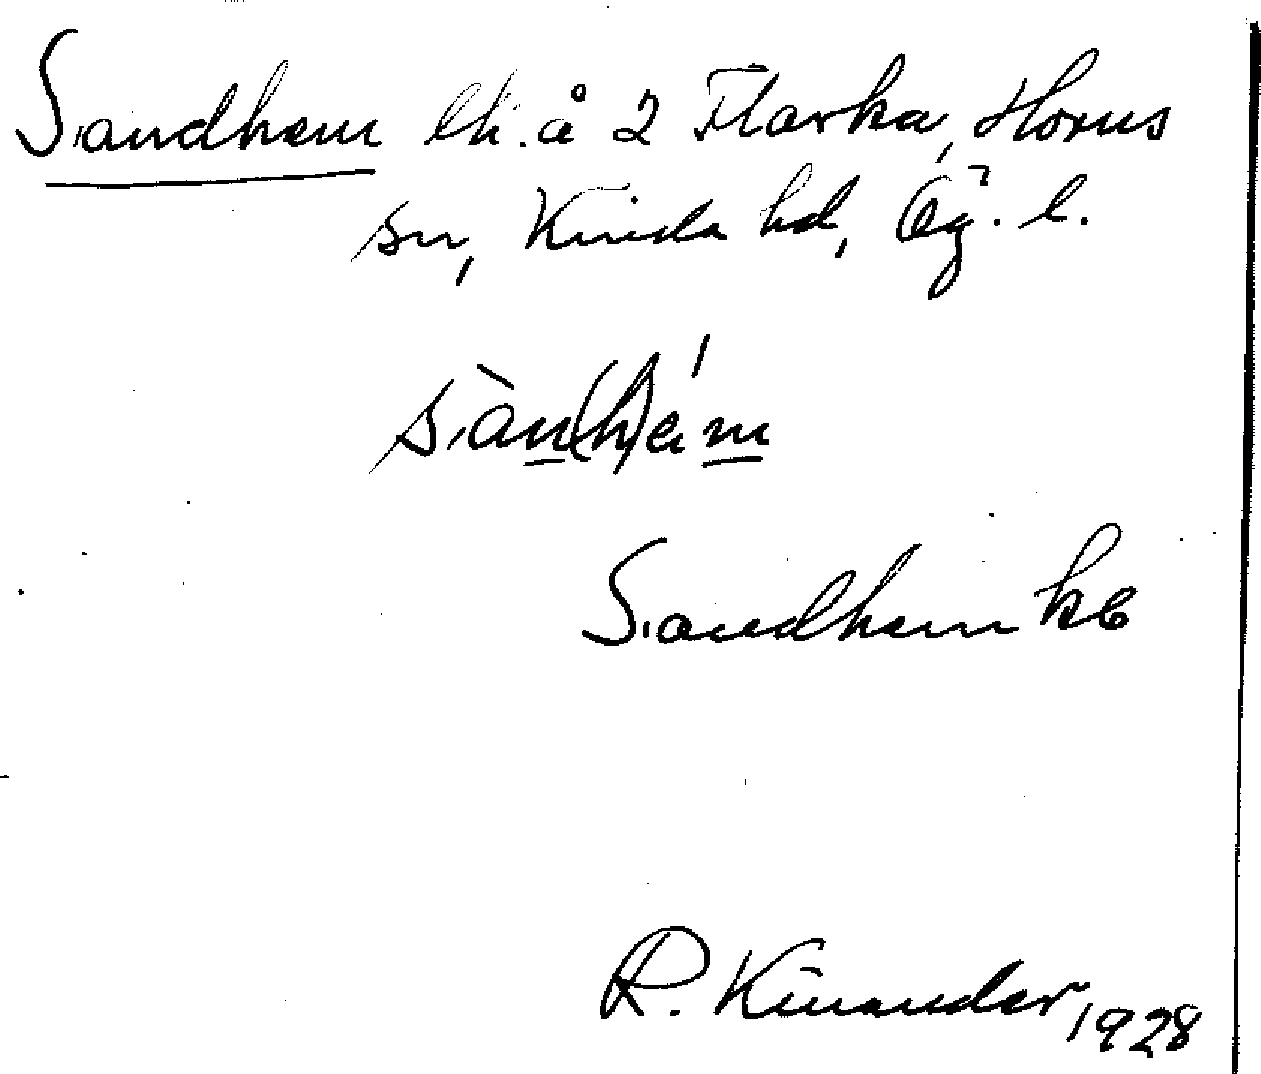 Sandhem lh. å 2 Flarka, Horns
sn, Kinda hd, Ög. l.
sàn(h)ém
Sandhem kb
R. Kinander, 1928